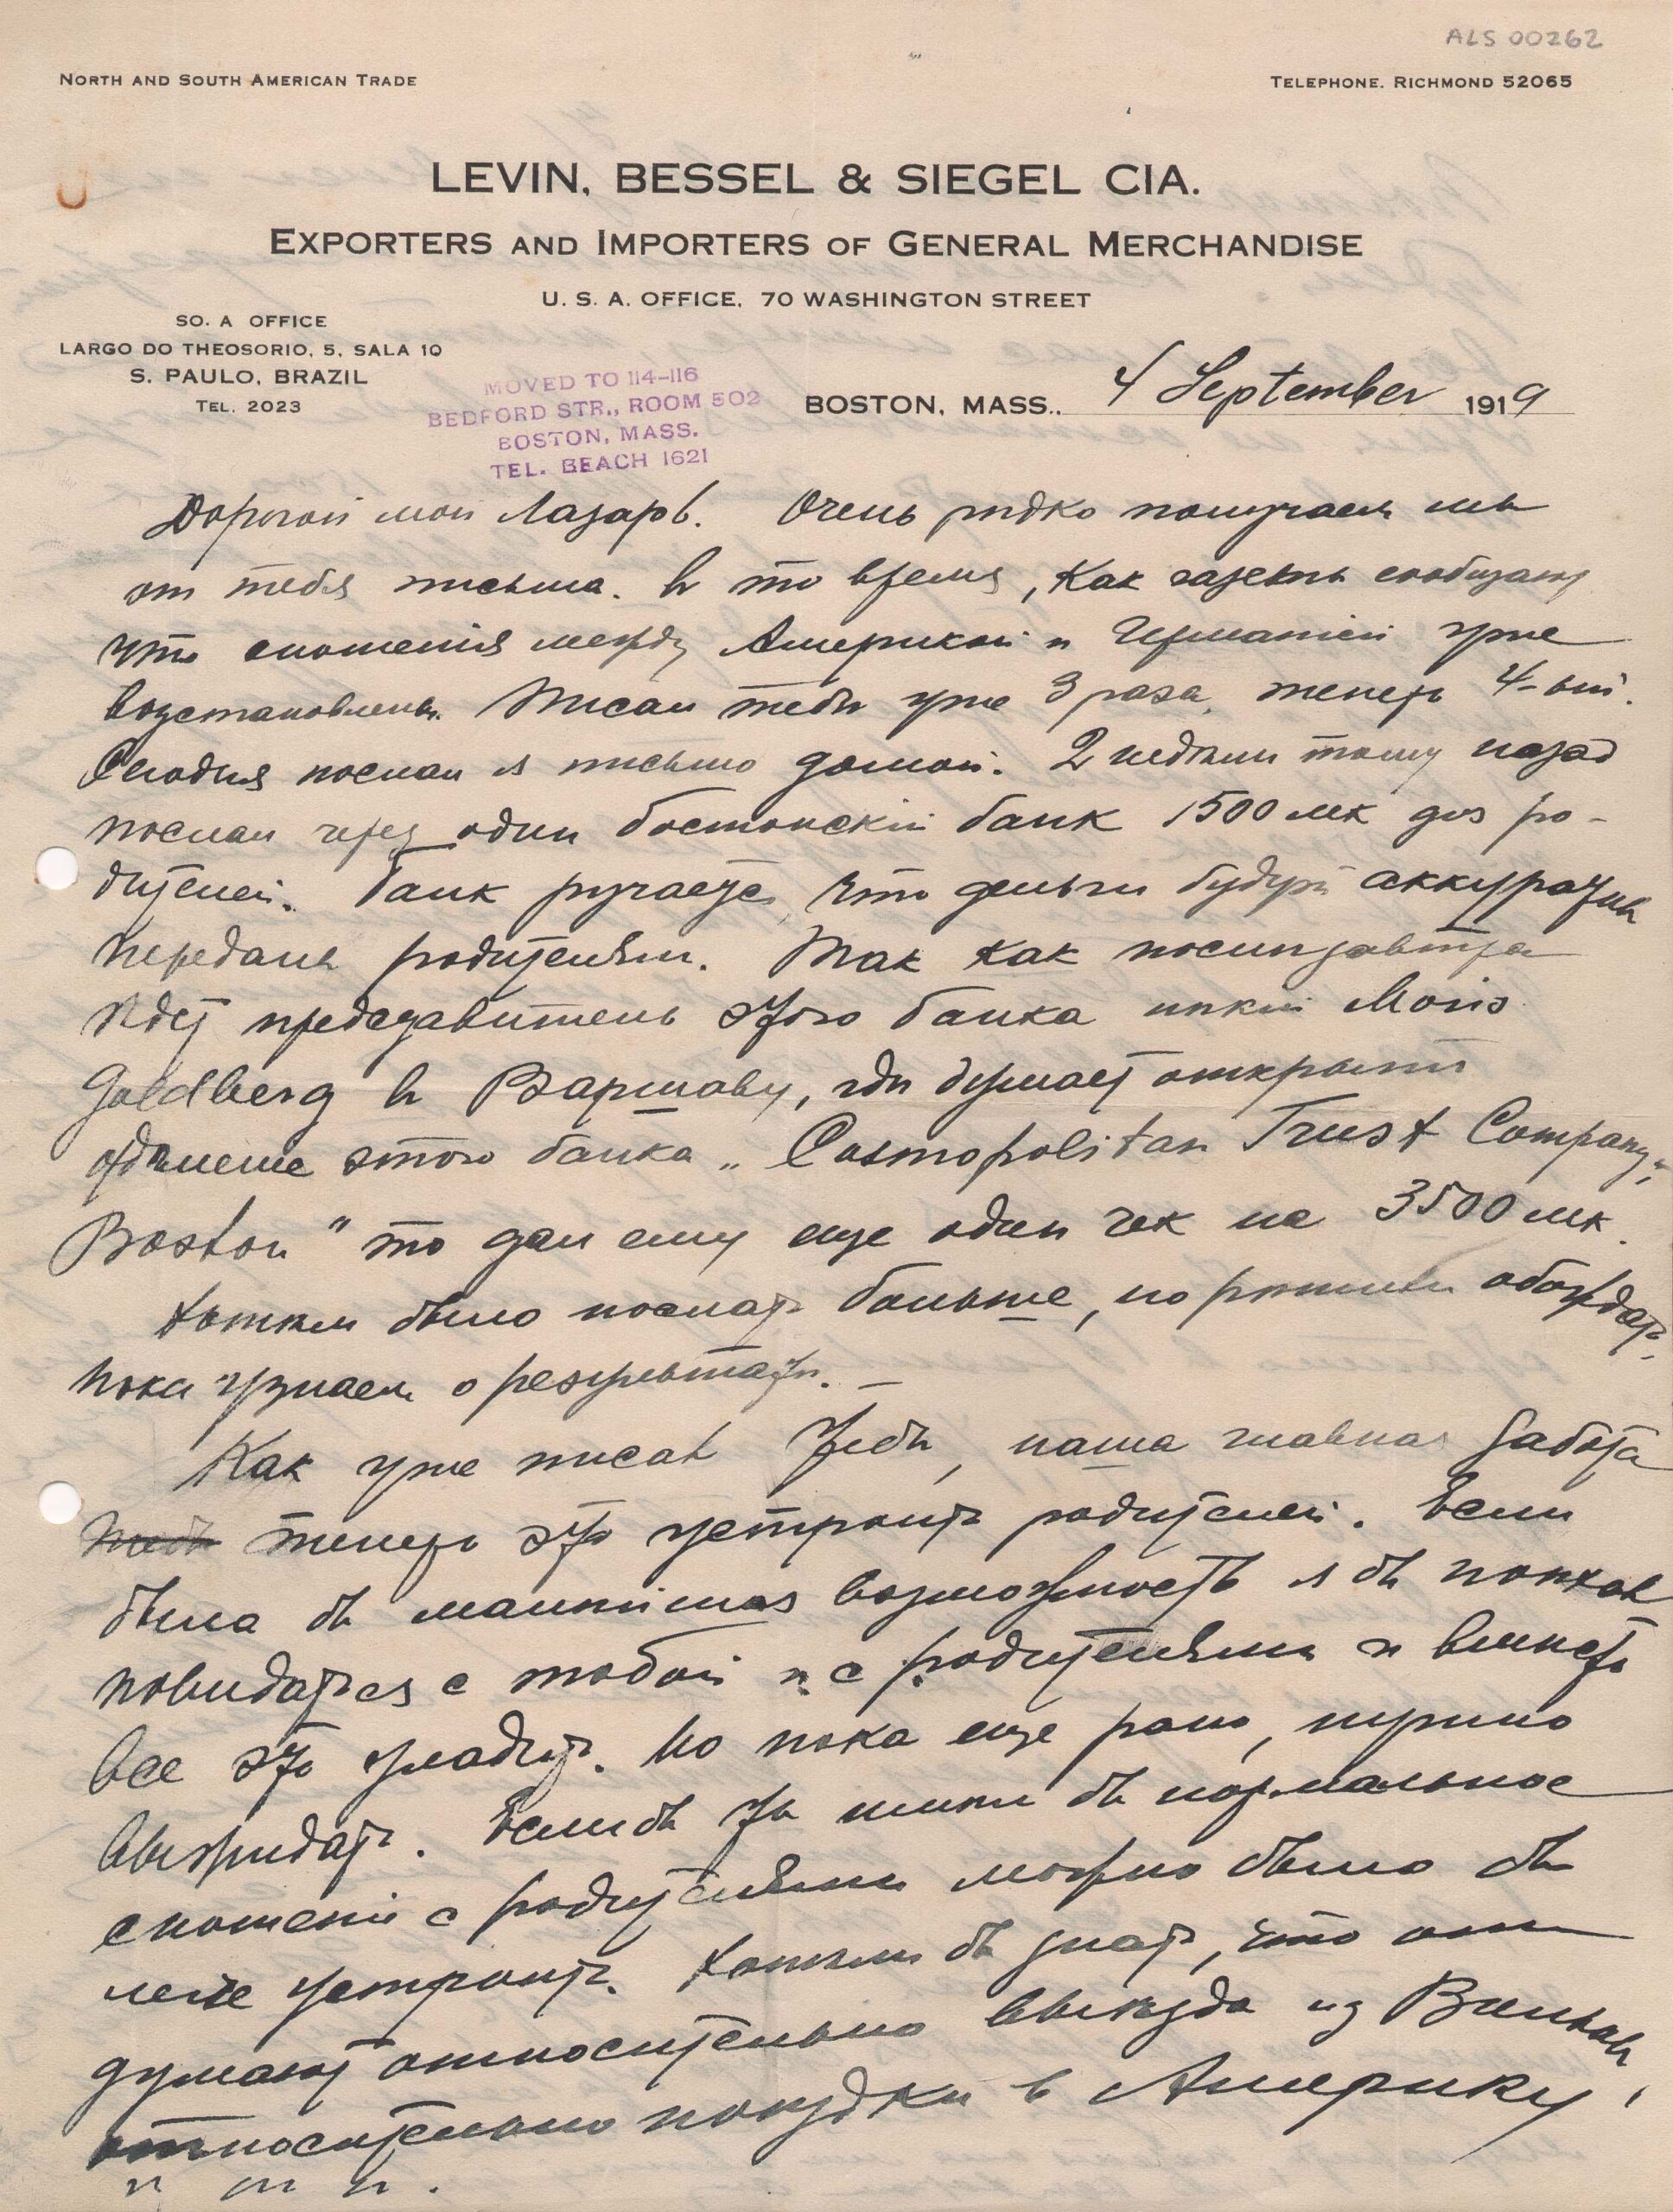 ALS 00262
NORTH AND SOUTH AMERICAN TRADE
TELEPHONE. RICHMOND 52065
LEVIN, BESSEL & SIEGEL CIA.
EXPORTERS AND IMPORTERS OF GENERAL MERCHANDISE
U. S. A. OFFICE, 70 WASHINGTON STREET
SO. A OFFICE
LARGO DO THEOSORIO, 5, SALA 10
S. PAULO, BRAZIL
TEL. 2023
MOVED TO 114-116
BEDFORD STR., ROOM 502
BOSTON, MASS.
TEL. BEACH 1621
BOSTON, MASS., 4 September 1919
Дорогой мой Лазарь. Очень рѣдко получаем мы
от тебя письма. В то время, как газеты сообщают
что сношенія между Америкой и Германіей уже
возстановлены. Писал тебѣ уже 3 раза, теперь 4-ый.
Сегодня послал я письмо домой. 2 недѣли тому назад
послал через один бостонскій банк 1500 мк для ро-
дителей. Банк ручается, что деньги будут аккуратны
переданы родителям. Так как послѣзавтра
ѣдет представитель этого банка нѣкій Moris
Goldberg в Варшаву, гдѣ думает открыть
отдѣленіе этого банка „Cosmopolitan Trust Company,
Boston" то дал ему еще один чек на 3500 мк.
Хотѣли было послать больше, но рѣшили обождать,
пока узнаем о результатѣ. —
Как уже писал тебѣ, наша главная забота
тебѣ теперь это устроить родителей. Если
была бы малѣйшая возможность я бы поѣхал
повидаться с тобой и с родителями и вмѣстѣ
все это уладить. Но пока еще рано, нужно
выжидать. Если бы ты имѣл бы нормальное
сношеніе с родителями можно было бы
легче устроить. Хотѣли бы знать, что они
думают относительно выѣзда из Вильны,
относительно поѣздки в Америку,
и т п.